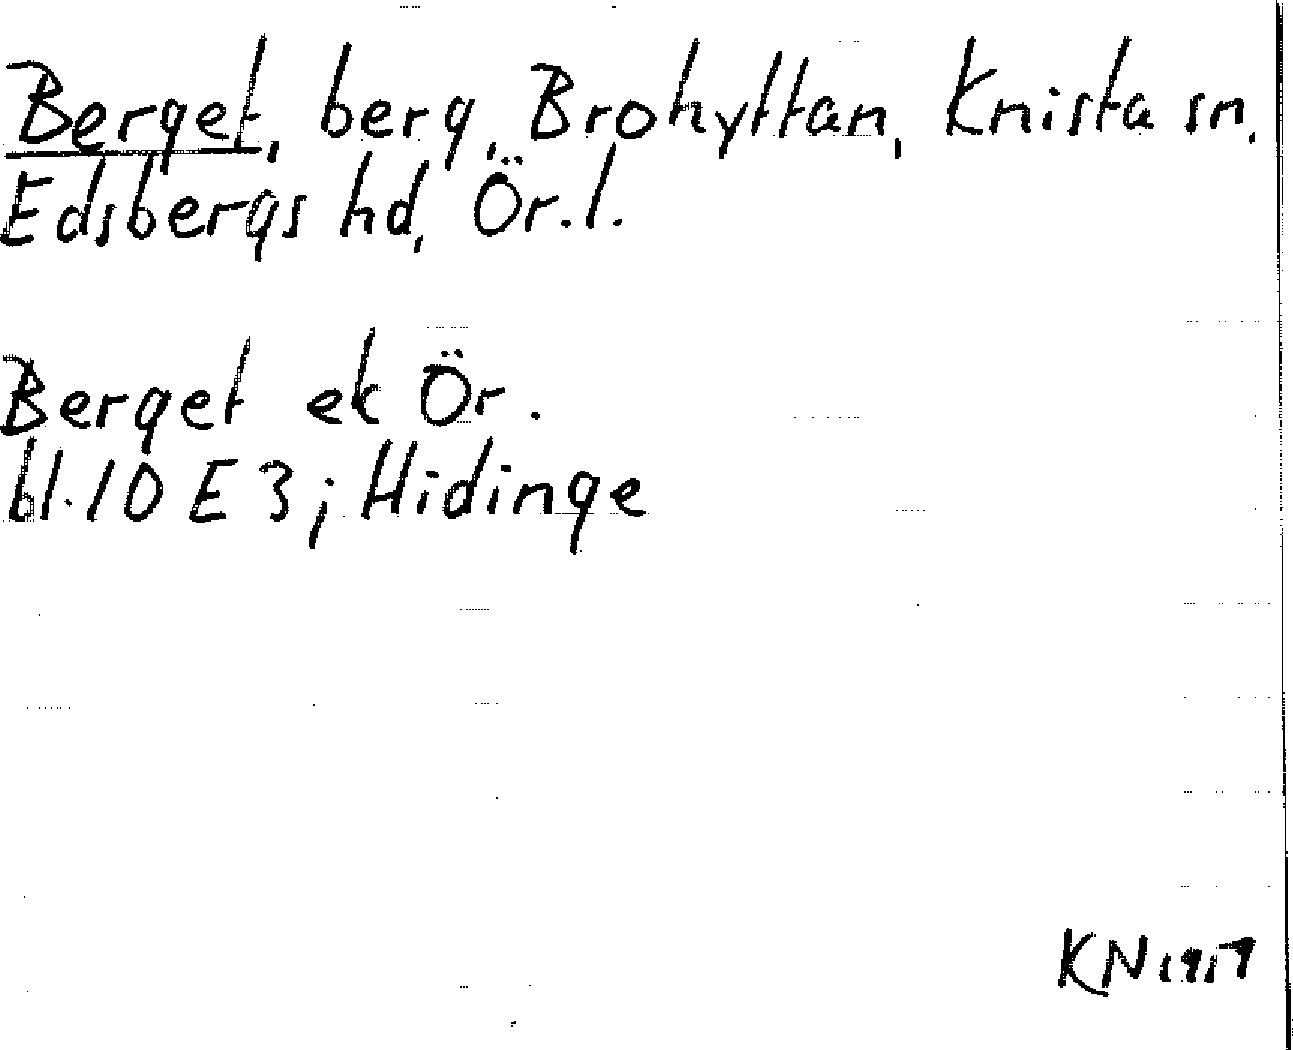 Berget, berg, Brohyttan, Knista sn.
Edsbergs hd, Ör. l.
Berget ek Ör.
bl. 10 E 3; Hidinge
KN